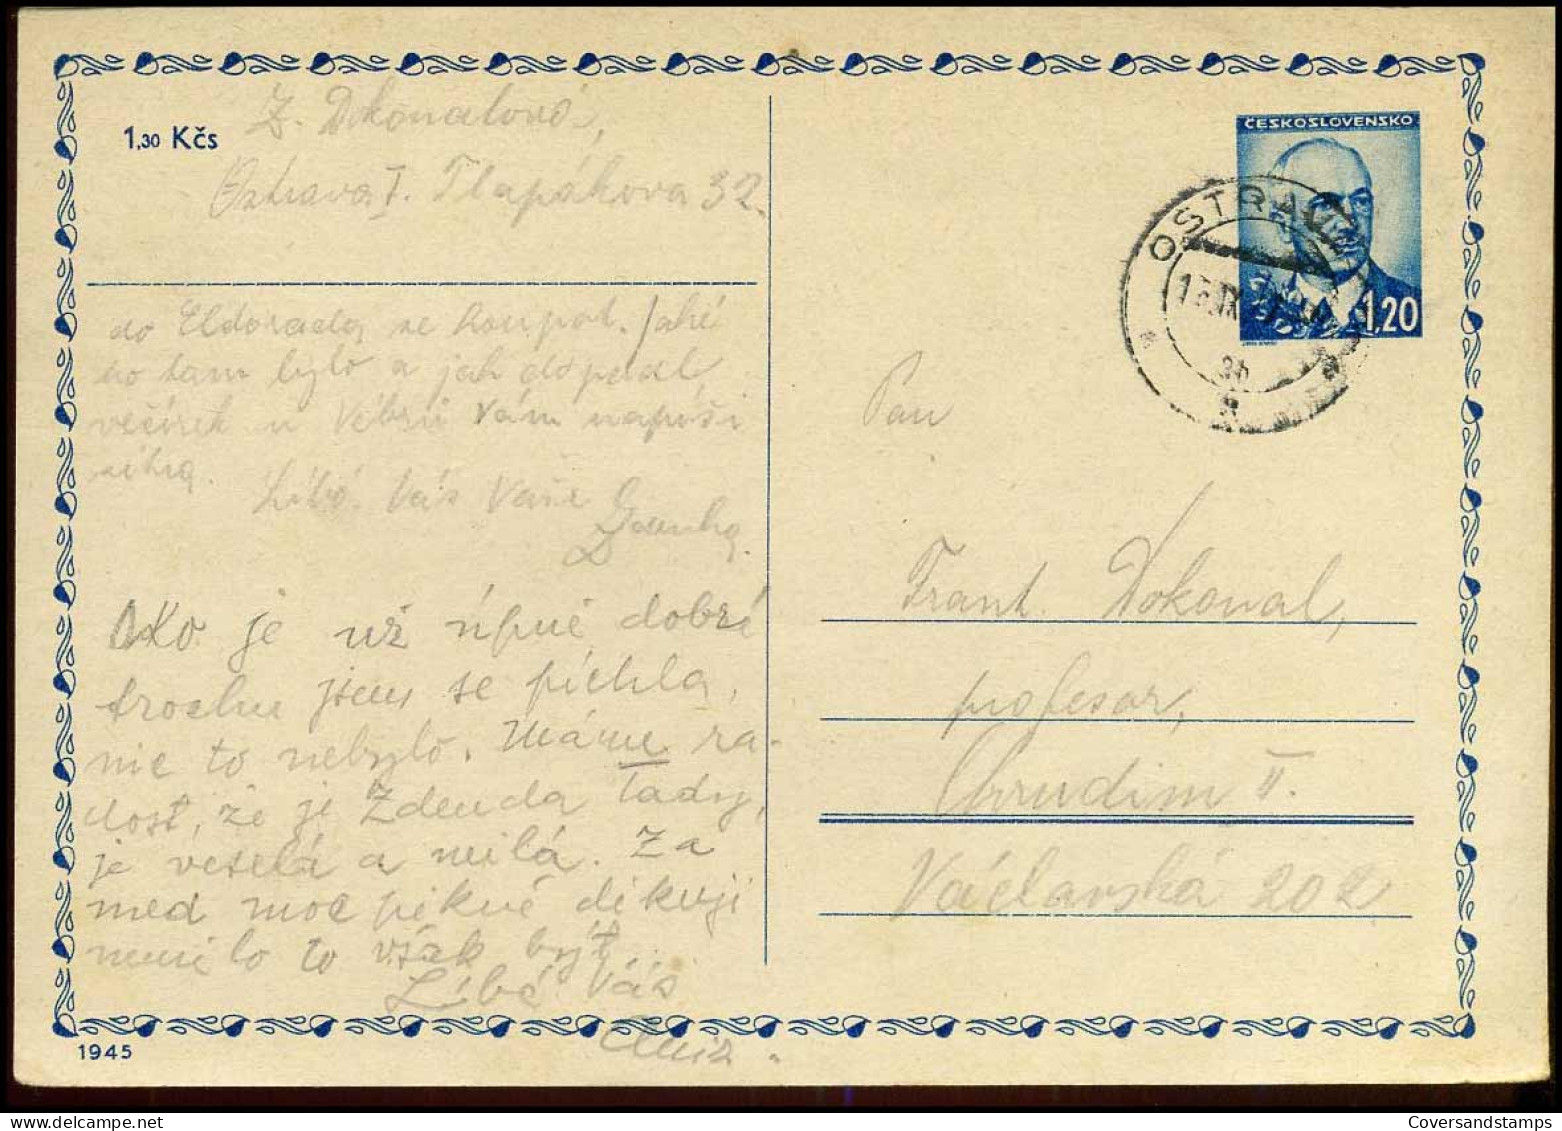 1,30 Kčs
Z. Dokonalová,
Ostrava I. Tlapákova 32.
do Eldorada se koupat. Jaké
to tam bylo a jak dopadl
večírek u Vás napíši
Líbá Vás Vaše
Zdenka.
Oko je už úplně dobré
trochu jsem se píchla,
nic to nebylo. Máme ra-
dost, že je Zdenda tady,
je veselá a milá. Za
med moc pěkně děkuji
nemělo to však být.
Líbá Vás
ČESKOSLOVENSKO
1,20
OSTRAVA
Pan
Frant. Dokonal,
profesor,
Chrudim II.
Václavská 202
1945
Coversandstamps